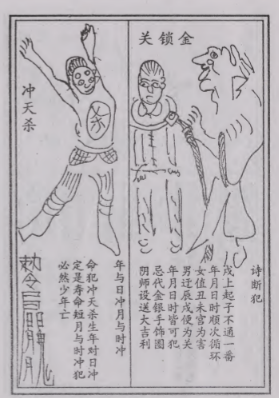 金锁关
诗断犯
戌上起子不通一番
年月日时顺次循环
女值丑未宫为害
男迁辰戌便为关
年月日时皆可犯
忌代金银手饰圆
阴师设送大吉利
冲天杀
年与日冲月与时冲
命犯冲天杀生年对日冲
定是寿命短月与时冲犯
必然少年亡
敕令